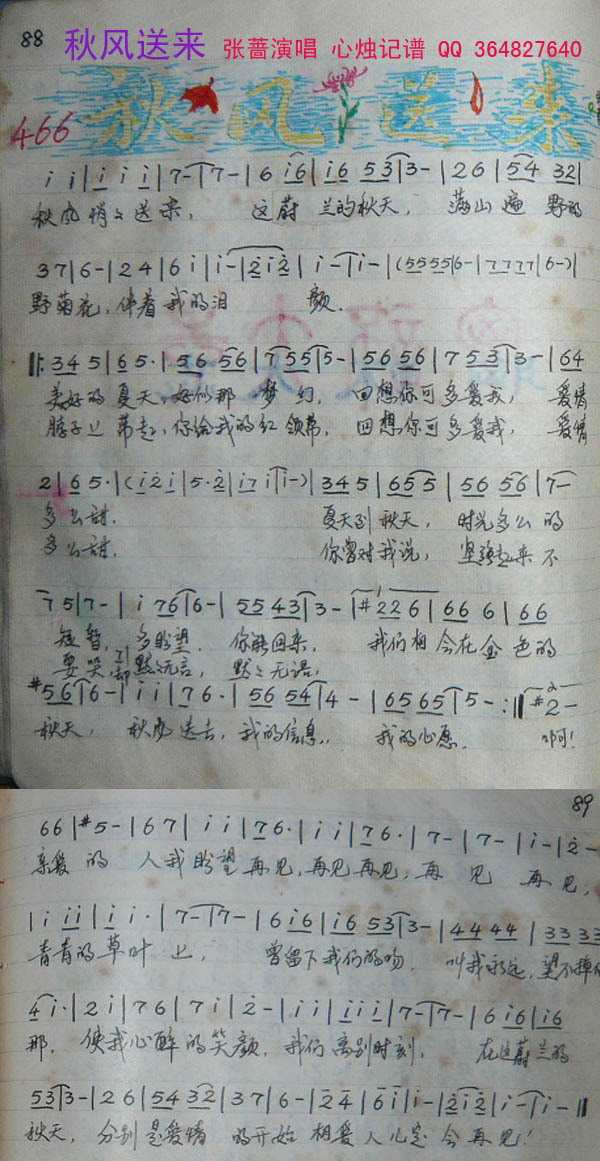 88 秋风送来 张蔷演唱 心烛记谱 QQ 364827640
466 秋风送来
i i | i i i | 7 - | 7 - | 6 i6 | i6 53 | 3 - | 26 | 54 32 |
秋风悄々送来, 这蔚兰的秋天, 满山遍野的
37 | 6 - | 24 | 6 i | i - | 2i2 | i - | i - | (5555 | 6 - | 7777 | 6 - ) |
野菊花,伴着我的泪 颜.
‖: 345 | 65· | 56 56 | 7 55 | 5 - | 56 56 | 7 53 | 3 - | 64
美好的夏天,好似那梦幻, 回想你可多爱我, 爱情
脖子上 带起,你给我的红领带, 回想你可多爱我, 爱情
2 | 65· | (i2i | 5·2 | i7i | i - ) | 345 | 655 | 56 56 | 7 -
多么甜. 夏天到秋天, 时光多么的
多么甜. 你曾对我说, 坚强起来不
75 | 7 - | i 76 | 6 - | 55 43 | 3 - | #226 | 66 6 | 66
短暂, 多盼望. 你能回来, 我们相会在金色的
要哭, 却默々无言, 默々无语,
#56 | 6 - | i i | 7 6· | 56 54 | 4 - | 65 65 | 5 - :‖ #2 -
秋天, 秋风送去,我的信息, 我的心愿. 啊!
89
66 | #5 - | 67 | i i | 76· | i i | 76· | 7 - | 7 - | i - | 2 -
亲爱的人我盼望再见,再见再见,再见 再见,
| i ii | i i· | 7 - | 7 - | 6 i6 | i6 53 | 3 - | 44 44 | 33 33
青青的草叶上, 曾留下我们的吻. 叫我永远,望不掉
4 i· | 2 i | 76 | 7 i | 2 - | i i | i i i | 7 - | 7 - | 6 i6 | i6
那, 使我心醉的笑颜, 我们离别时刻, 在这蔚兰的
53 | 3 - | 26 | 54 32 | 37 | 6 - | 24 | 6i | i - | 2i2 | i - | i - ‖
秋天, 分别是爱情的开始 相爱人儿总会再见!